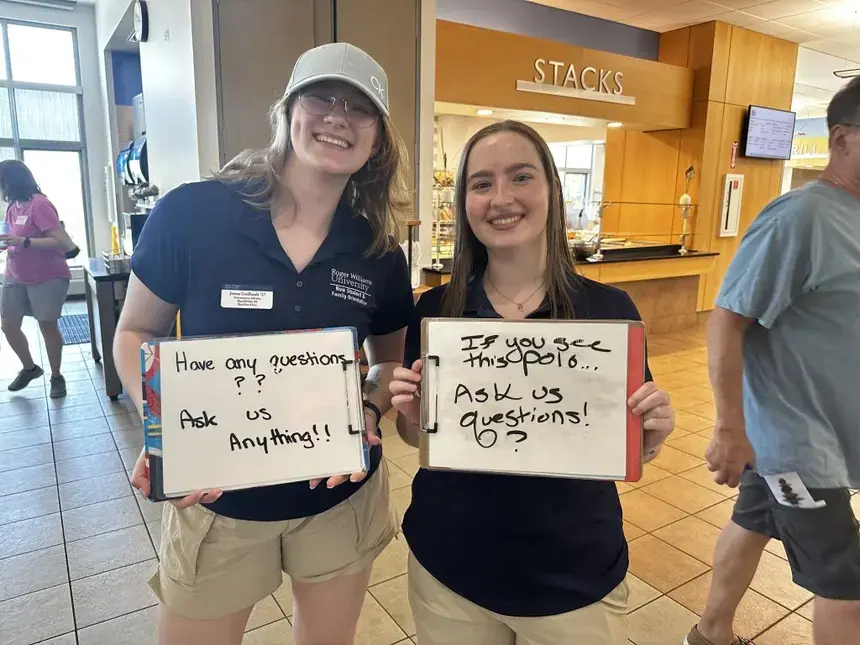 STACKS
CK
Roger Williams
University
New Student &
Family Orientation
Have any questions
? ?
Ask us
Anything!!
If you see
this polo...
Ask us
questions!
?